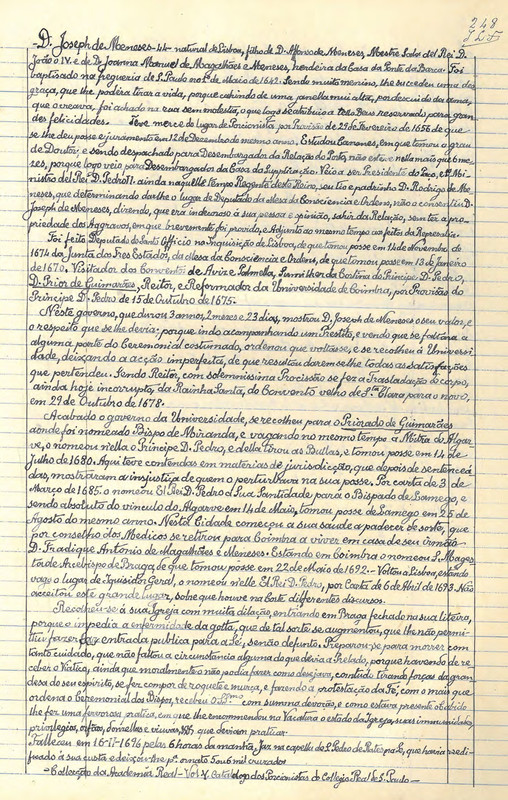 248
D. Joseph de Meneses -44- natural de Lisboa, filho de D. Afonso de Meneses, Mestre Sala del Rei D.
João o IV. e de Dª Joanna Manuel de Magalhães e Meneses, herdeira da Casa da Ponte da Barca. Foi
baptisado na freguezia de S. Paulo no 1º de Maio de 1642. Sendo muito menino, lhe succedeu uma des
graça, que lhe podéra tirar a vida, porque cahindo de uma janella mui alta, por descuido da ama,
que o creava, foi achado na rua sem molestia, o que logo se atribuio a tê-lo Deus reservado para gran
des felicidades. Teve mercê do lugar de Porcionista, por Provisão de 29 de Fevereiro de 1656 de que
se lhe deu posse e juramento em 12 de Dezembro do mesmo anno. Estudou Canones, em que tomou o grau
de Doutor, e sendo despachado para Desembargador da Relação do Porto, não esteve nella mais que 6 me
ses, porque logo veio para Desembargador da Casa da Supplicação. Veio a ser Presidente do Paço, e Mi
nistro del Rei D. Pedro II. ainda naquelle tempo Regente deste Reino, seu tio e padrinho D. Rodrigo de Me
neses, que determinando dar-lhe o lugar de Deputado da Mesa da Consciencia e Ordens, não o consentiu D.
Joseph de Meneses, dizendo, que era indecoroso á sua pessoa e opinião, sahir da Relação, sem ter a pro
priedade dos Aggravos, em que brevemente foi provido, e Adjunto ao mesmo tempo aos feitos da
Foi feito Deputado do Santo Officio na Inquisição de Lisboa, de que tomou posse em 14 de Novembro de
1674 da Junta dos Tres Estados, da Mesa da Consciência e Ordens, de que tomou posse em 13 de Janeiro
de 1670. Visitador dos Conventos de Aviz e Palmella, Sumilher da Cortina do Principe D. Pedro,
D. Prior de Guimarães, Reitor, e Reformador da Universidade de Coimbra, por Provisão do
Príncipe D. Pedro de 15 de Outubro de 1675.
Neste governo, que durou 3 annos, 2 meses e 23 dias, mostrou D. Joseph de Meneses o seu valor, e
o respeito que se lhe devia: porque indo acompanhando um Prestito, e vendo que se faltava a
alguma parte do Ceremonial costumado, ordenou que voltasse, e se recolheu á Universi
dade, deixando a acção imperfeita, de que resultou darem-se-lhe todas as satisfações
que pertendeu. Sendo Reitor, com solemnissima Procissão se fez a Trasladação do corpo,
ainda hoje incorrupto, da Rainha Santa, do Convento velho de Stª Clara para o novo,
em 29 de Outubro de 1678.
Acabado o governo da Universidade, se recolheu para o Priorado de Guimarães
aonde foi nomeado Bispo de Miranda, e vagando no mesmo tempo a Mitra do Algar
ve, o nomeou n'ella o Principe D. Pedro, e della tirou as Bullas, e tomou posse em 14 de
Julho de 1680. Aqui teve contendas em materias de jurisdicção, que depois de sentencea
das, mostraram a injustiça de quem o perturbava na sua posse. Por carta de 3 de
Março de 1685 o nomeou El Rei D. Pedro a Sua Santidade para o Bispado de Lamego, e
sendo absoluto do vinculo do Algarve em 14 de Maio, tomou posse de Lamego em 25 de
Agosto do mesmo anno. Nesta Cidade começou a sua saude a padecer de sorte, que
por conselho dos Medicos se retirou para Coimbra a viver em casa de seu irmão
D. Fradique Antonio de Magalhães e Meneses. Estando em Coimbra o nomeou S. Mages
tade Arcebispo de Braga, de que tomou posse em 22 de Maio de 1692. - Voltou a Lisboa, estando
vago o lugar de Iquisidor Geral, o nomeou n'elle El Rei D. Pedro, por Carta de 6 de Abril de 1693. Não
acceitou este grande lugar, sobre que houve na Corte differentes discursos.
Recolheu-se á sua Igreja com muita dilação, entrando em Braga fechado na sua liteira,
porque o impedia a enfermidade da gotta, que de tal sorte se augmentou, que lhe não permi
tiu fazer entrada publica para a Sé, senão defunto. Preparou-se para morrer com
tanto cuidado, que não faltou a circunstancia alguma do que devia a Prelado, porque havendo de re
ceber o Viatico, ainda que moralmente não podia fazer como desejava, contudo tirando forças da gran
desa do seu espirito, se fez compor de roquete e murça, e fazendo a protestação da Fé, com o mais que
ordena o Ceremonial dos Bispos, recebeu o com summa devoção, e como estava presente o Cabido
lhe fez uma fervorosa pratica, em que lhe encommendou na Vacatura o estado da Igreja, suas immunidades,
privilegios, orfãos, donzellas e viuvas, que deviam praticar.
Falleceu em 16-II-1696 pelas 6 horas da manhã, Jaz na capella de S. Pedro de Rates na Sé, que havia reedi
ficado á sua custa e deixou-lhe pª ornato 5 ou 6 mil cruzados
- Collecção da Academia Real - Vol 4, Catalogo dos Porcionistas do Collegio Real de S. Paulo -